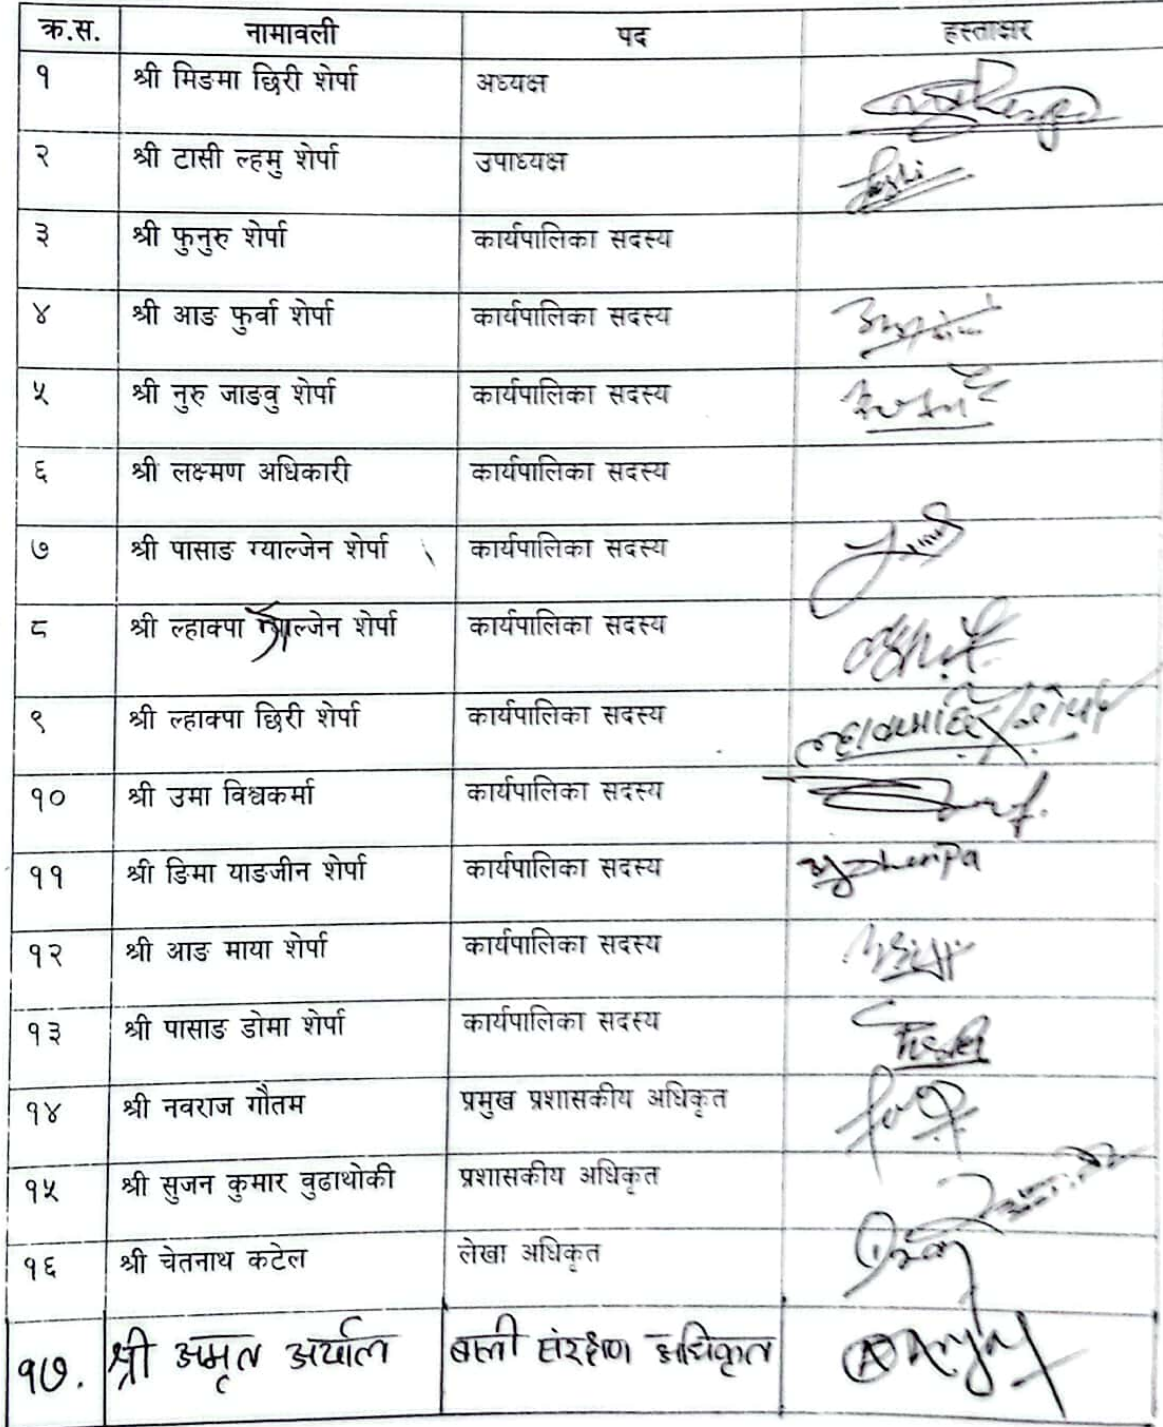 क्र.स. नामावली पद हस्ताक्षर
१ श्री मिङमा छिरी शेर्पा अध्यक्ष
२ श्री टासी ल्हमु शेर्पा उपाध्यक्ष
३ श्री फुनुरु शेर्पा कार्यपालिका सदस्य
४ श्री आङ फुर्वा शेर्पा कार्यपालिका सदस्य
५ श्री नुरु जाङवु शेर्पा कार्यपालिका सदस्य
६ श्री लक्ष्मण अधिकारी कार्यपालिका सदस्य
७ श्री पासाङ ग्याल्जेन शेर्पा कार्यपालिका सदस्य
८ श्री ल्हाक्पा ग्याल्जेन शेर्पा कार्यपालिका सदस्य
९ श्री ल्हाक्पा छिरी शेर्पा कार्यपालिका सदस्य
१० श्री उमा विश्वकर्मा कार्यपालिका सदस्य
११ श्री ङिमा याङजीन शेर्पा कार्यपालिका सदस्य
१२ श्री आङ माया शेर्पा कार्यपालिका सदस्य
१३ श्री पासाङ डोमा शेर्पा कार्यपालिका सदस्य
१४ श्री नवराज गौतम प्रमुख प्रशासकीय अधिकृत
१५ श्री सुजन कुमार वुढाथोकी प्रशासकीय अधिकृत
१६ श्री चेतनाथ कटेल लेखा अधिकृत
१७. श्री अमृत अर्याल बाली संरक्षण अधिकृत